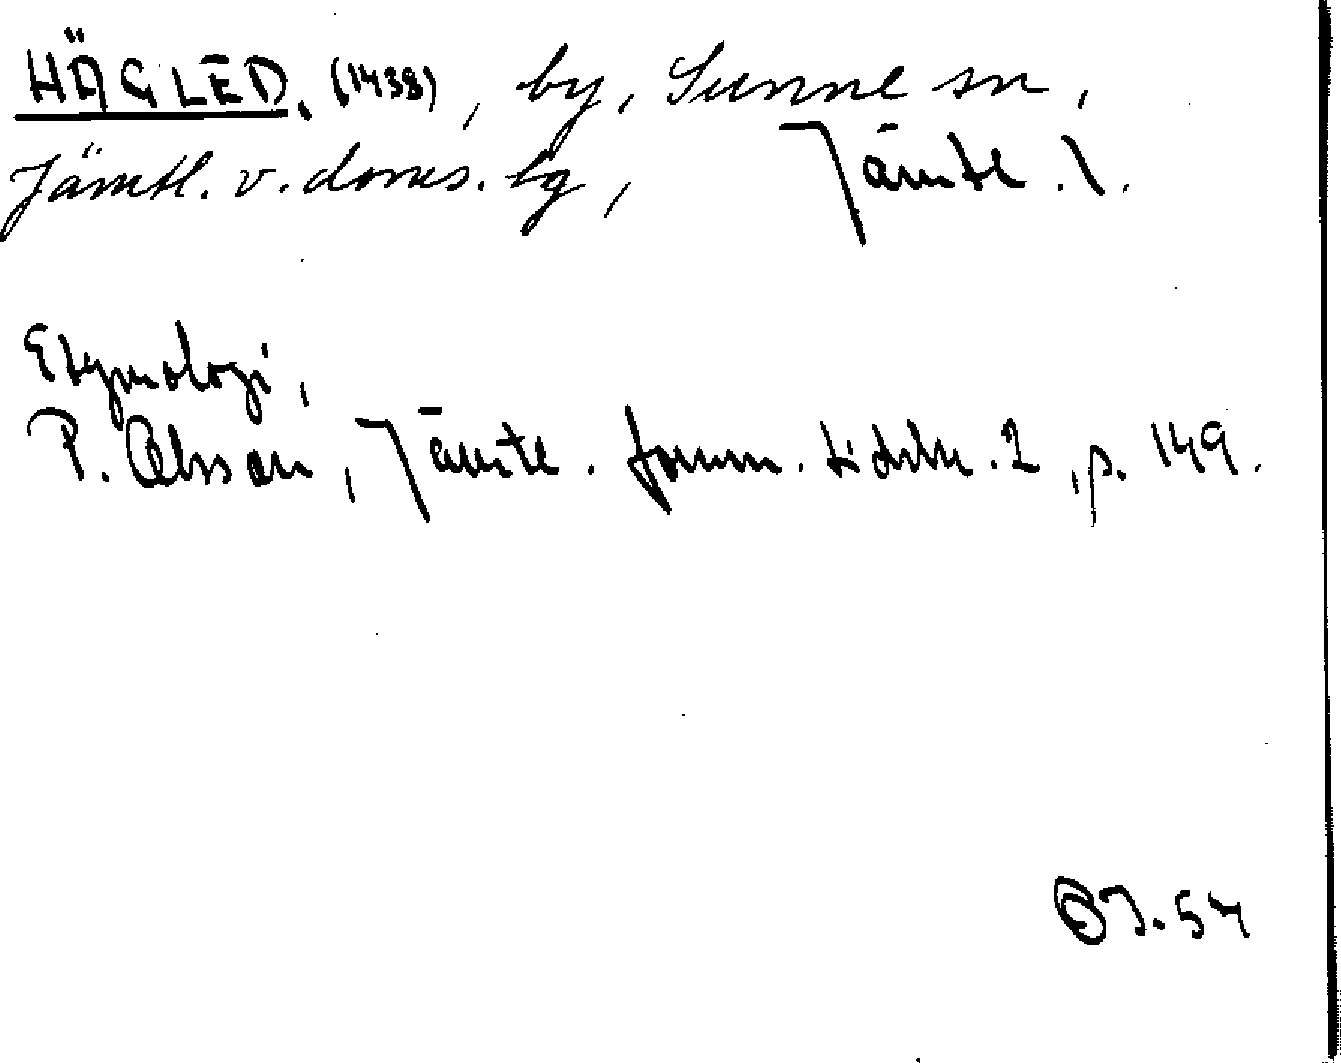 HÄGLED. (1438), by, Sunne sn,
Jämtl. v. doms. tg, Jämtl. l.
Etymologi,
P. Olsson, Jämtl. fornm. tidskr. 2, p. 149.